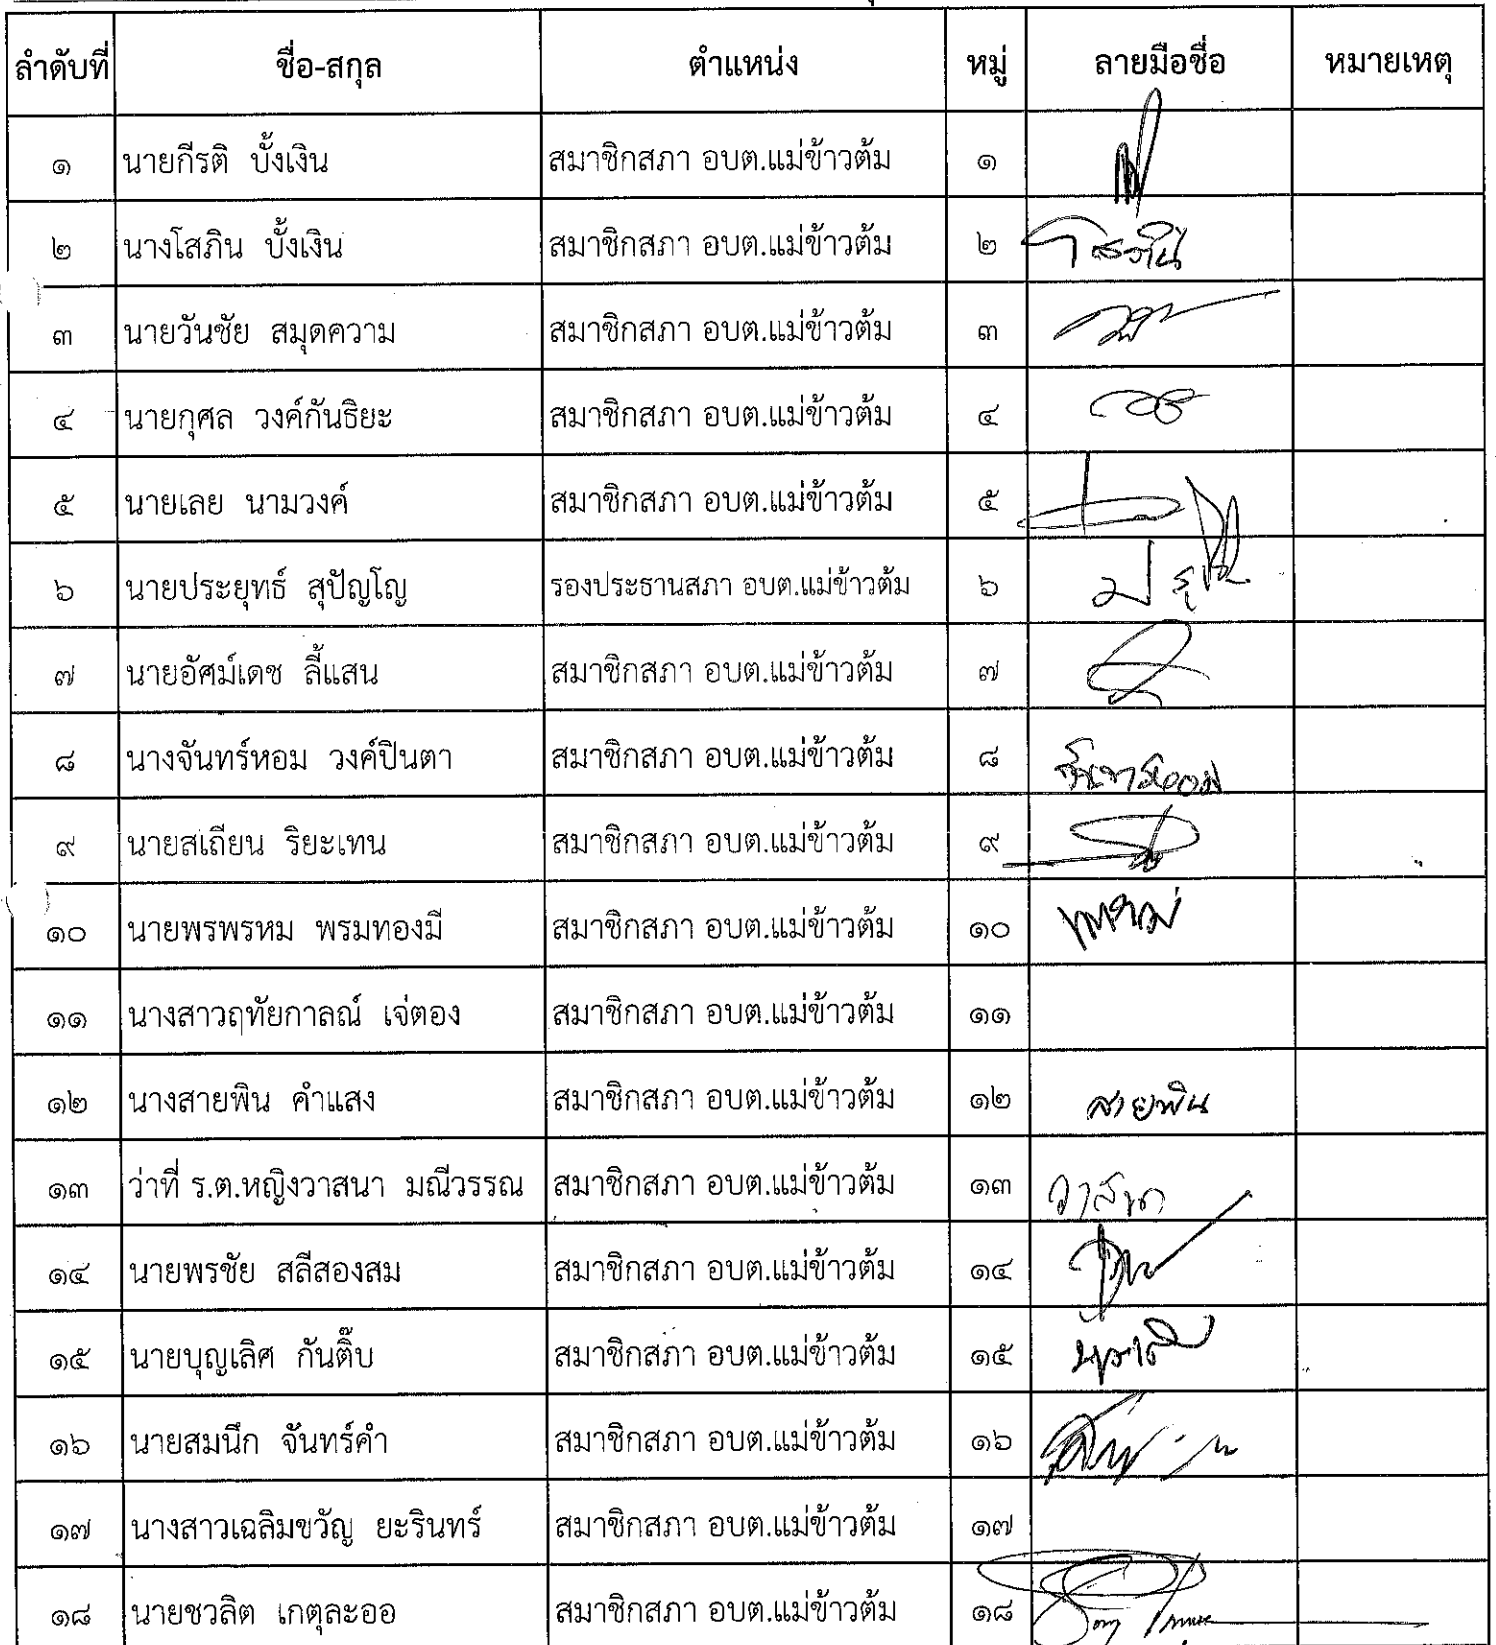 ลำดับที่ ชื่อ-สกุล ตำแหน่ง หมู่ ลายมือชื่อ หมายเหตุ
๑ นายกีรติ บั้งเงิน สมาชิกสภา อบต.แม่ข้าวต้ม ๑
๒ นางโสภิน บั้งเงิน สมาชิกสภา อบต.แม่ข้าวต้ม ๒ โสภิน
๓ นายวันชัย สมุดความ สมาชิกสภา อบต.แม่ข้าวต้ม ๓
๔ นายกุศล วงค์กันธิยะ สมาชิกสภา อบต.แม่ข้าวต้ม ๔
๕ นายเลย นามวงค์ สมาชิกสภา อบต.แม่ข้าวต้ม ๕
๖ นายประยุทธ์ สุปัญโญ รองประธานสภา อบต.แม่ข้าวต้ม ๖
๗ นายอัศม์เดช ลี้แสน สมาชิกสภา อบต.แม่ข้าวต้ม ๗
๘ นางจันทร์หอม วงค์ปินตา สมาชิกสภา อบต.แม่ข้าวต้ม ๘ จันทร์หอม
๙ นายสเถียน ริยะเทน สมาชิกสภา อบต.แม่ข้าวต้ม ๙
๑๐ นายพรพรหม พรมทองมี สมาชิกสภา อบต.แม่ข้าวต้ม ๑๐
๑๑ นางสาวฤทัยกาลณ์ เจ่ตอง สมาชิกสภา อบต.แม่ข้าวต้ม ๑๑
๑๒ นางสายพิน คำแสง สมาชิกสภา อบต.แม่ข้าวต้ม ๑๒ สายพิน
๑๓ ว่าที่ ร.ต.หญิงวาสนา มณีวรรณ สมาชิกสภา อบต.แม่ข้าวต้ม ๑๓ วาสนา
๑๔ นายพรชัย สลีสองสม สมาชิกสภา อบต.แม่ข้าวต้ม ๑๔
๑๕ นายบุญเลิศ กันติ๊บ สมาชิกสภา อบต.แม่ข้าวต้ม ๑๕
๑๖ นายสมนึก จันทร์คำ สมาชิกสภา อบต.แม่ข้าวต้ม ๑๖
๑๗ นางสาวเฉลิมขวัญ ยะรินทร์ สมาชิกสภา อบต.แม่ข้าวต้ม ๑๗
๑๘ นายชวลิต เกตุละออ สมาชิกสภา อบต.แม่ข้าวต้ม ๑๘